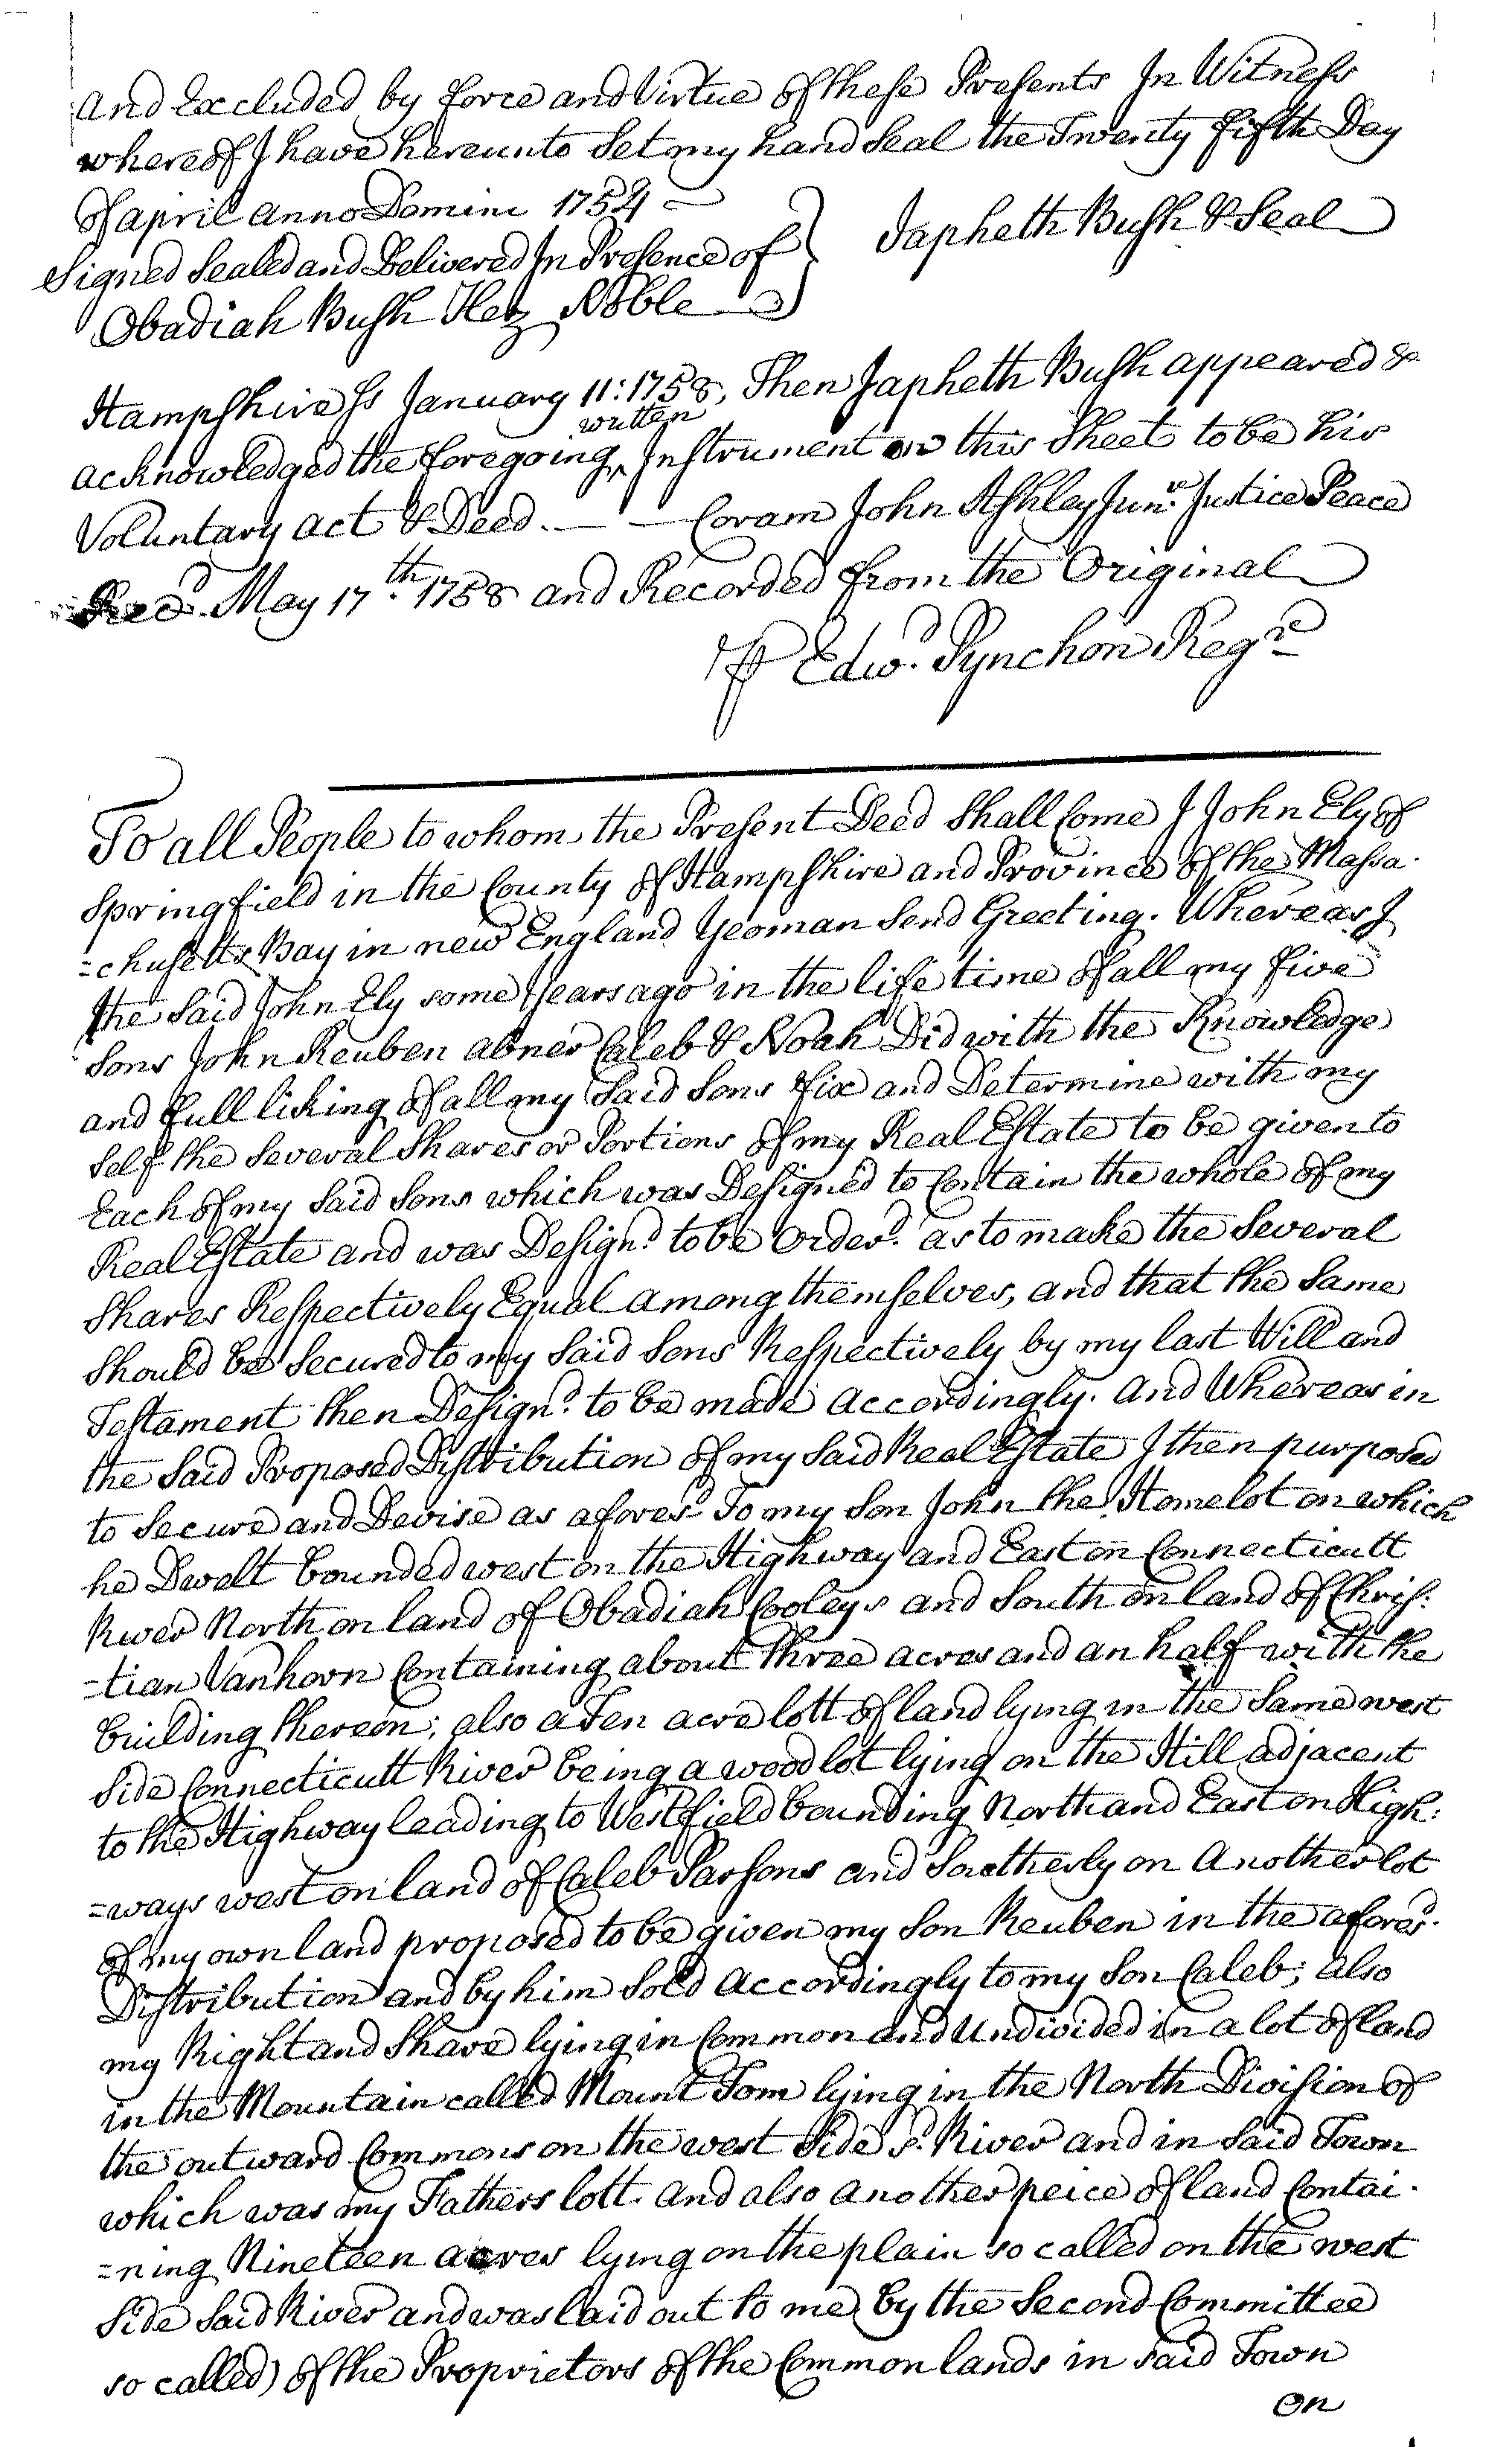 and Excluded by force and Virtue of these Presents In Witness
whereof I have hereunto Set my hand Seal the Twenty fifth Day
of april anno Domini 1754
Signed Sealed and Delivered In Presence of } Japheth Bush & Seal
Obadiah Bush Hez Noble
Hampshire Ss January 11: 1758, Then Japheth Bush appeared &
written
acknowledged the foregoing ‸ Instrument on this Sheet to be his
Voluntary act & Deed. — — Coram John Ashley Junr. Justice Peace
Recd. May 17th. 1758 and Recorded from the Original
⅌ Edwd. Pynchon Regre
To all People to whom the Present Deed Shall Come I John Ely of
Springfield in the County of Hampshire and Province of the Massa.
=chusetts Bay in new England Yeoman Send Greeting. Whereas I
the Said John Ely some Years ago in the life time of all my five
Sons John Reuben abner Caleb & Noah Did with the Knowledge
and full liking of all my Said Sons fix and Determine with my
Self the Several Shares or Portions of my Real Estate to be given to
Each of my Said Sons which was Designed to Contain the whole of my
Real Estate and was Designd. to be Orderd. as to make the Several
Shares Respectively Equal among themselves, and that the Same
Should be Secured to my Said Sons Respectively by my last Will and
Testament then Designd. to be made accordingly. And Whereas in
the Said Proposed Distribution of my Said Real Estate I then purposed
to Secure and Devise as aforesd To my Son John the Homelot on which
he Dwelt bounded west on the Highway and East on Connecticutt
River North on land of Obadiah Cooleys and South on land of Chris:
=tian Vanhorn Containing about three acres and an half with the
building thereon; also a Ten acre lott of land lying in the Same west
Side Connecticutt River being a wood lot lying on the Hill adjacent
to the Highway leading to Westfield bounding North and East on High:
=ways west on land of Caleb Parsons and Southerly on Another lot
of my own land proposed to be given my Son Reuben in the aforesd.
Distribution and by him Sold accordingly to my Son Caleb; also
my Right and Share lying in Common and Undivided in a lot of land
in the Mountain called Mount Tom lying in the North Division of
the outward Commons on the west Side sd. River and in Said Town
which was my Fathers lott. And also another peice of land Contai.
=ning Nineteen acres lying on the plain so called on the west
Side Said River and was laid out to me by the Second Committee
so called) of the Proprietors of the Common lands in said Town
on